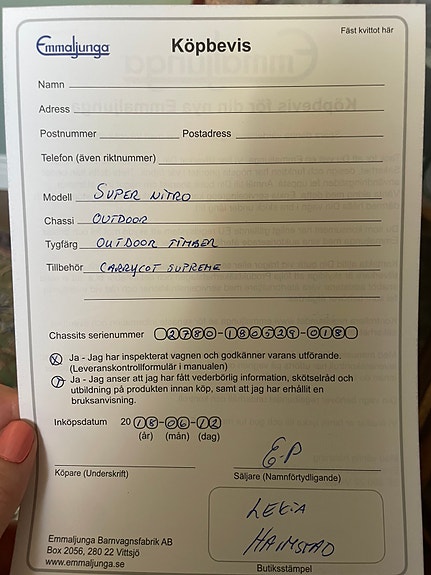 Fäst kvittot här
Emmaljunga
Köpbevis
Namn
Adress
Postnummer Postadress
Telefon (även riktnummer)
Modell SUPER NITRO
Chassi OUTDOOR
Tygfärg OUTDOOR TIMBER
Tillbehör CARRYCOT SUPREME
Chassits serienummer 2780-180529-018
Ja - Jag har inspekterat vagnen och godkänner varans utförande.
(Leveranskontrollformulär i manualen)
Ja - Jag anser att jag har fått vederbörlig information, skötselråd och
utbildning på produkten innan köp, samt att jag har erhållit en
bruksanvisning.
Inköpsdatum 20 18-06-12
(år) (mån) (dag)
E-P
Köpare (Underskrift) Säljare (Namnförtydligande)
LEKIA
HALMSTAD
Emmaljunga Barnvagnsfabrik AB
Box 2056, 280 22 Vittsjö
www.emmaljunga.se
Butiksstämpel